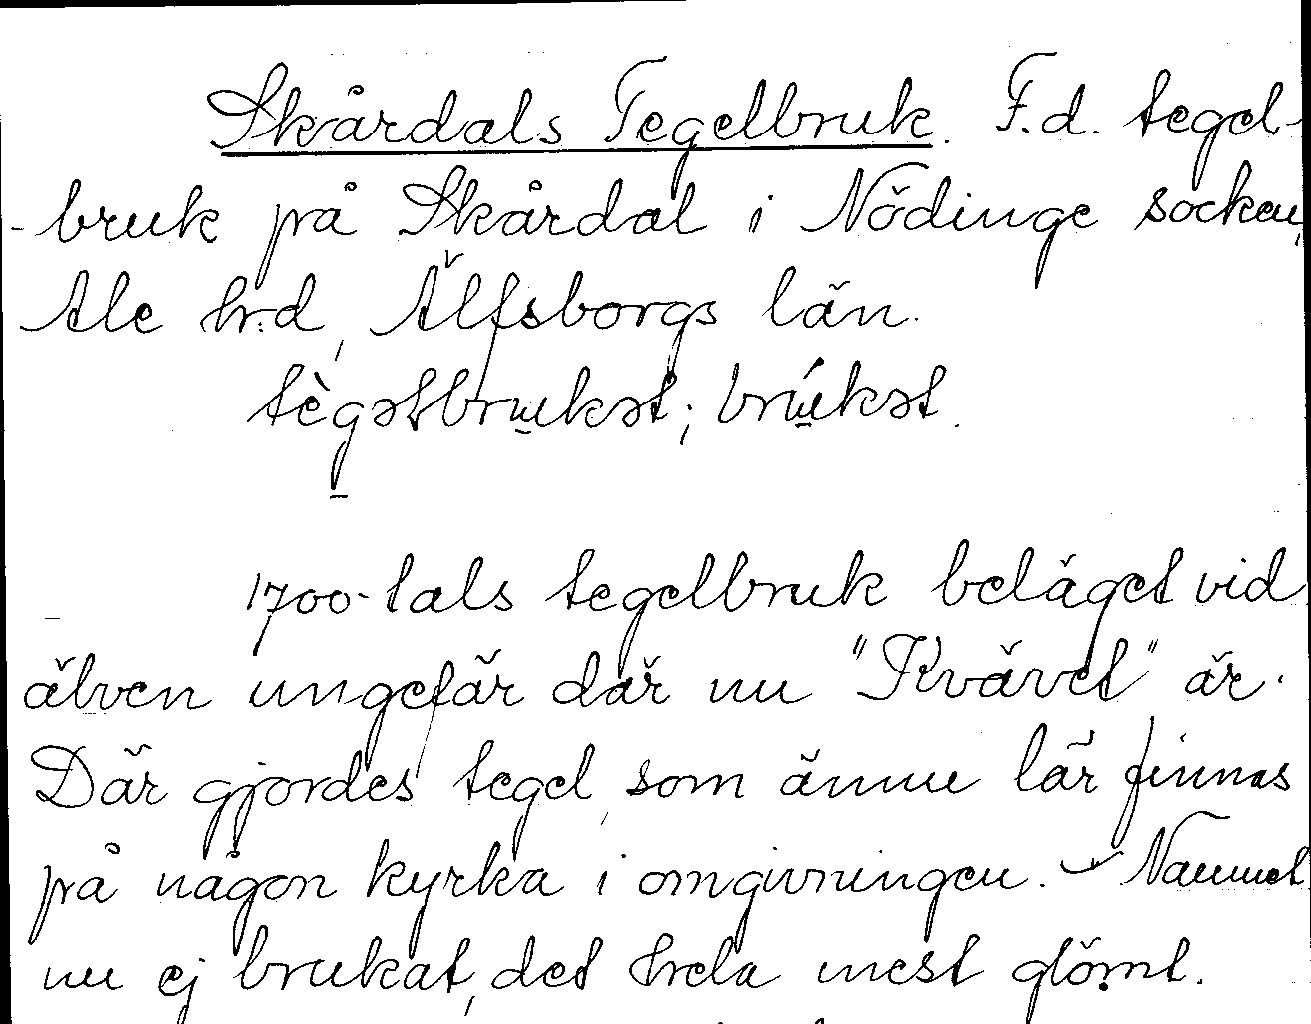 Skårdals Tegelbruk. F.d. tegel-
-bruk på Skårdal i Nödinge socken,
Ale hrd, Älfsborgs län.
tègətbrukət; brúkət.
1700-tals tegelbruk beläget vid
älven ungefär där nu "Kvävet" är.
Där gjordes tegel, som ännu lär finnas
på någon kyrka i omgivningen. - Namnet
nu ej brukat, det hela mest glömt.